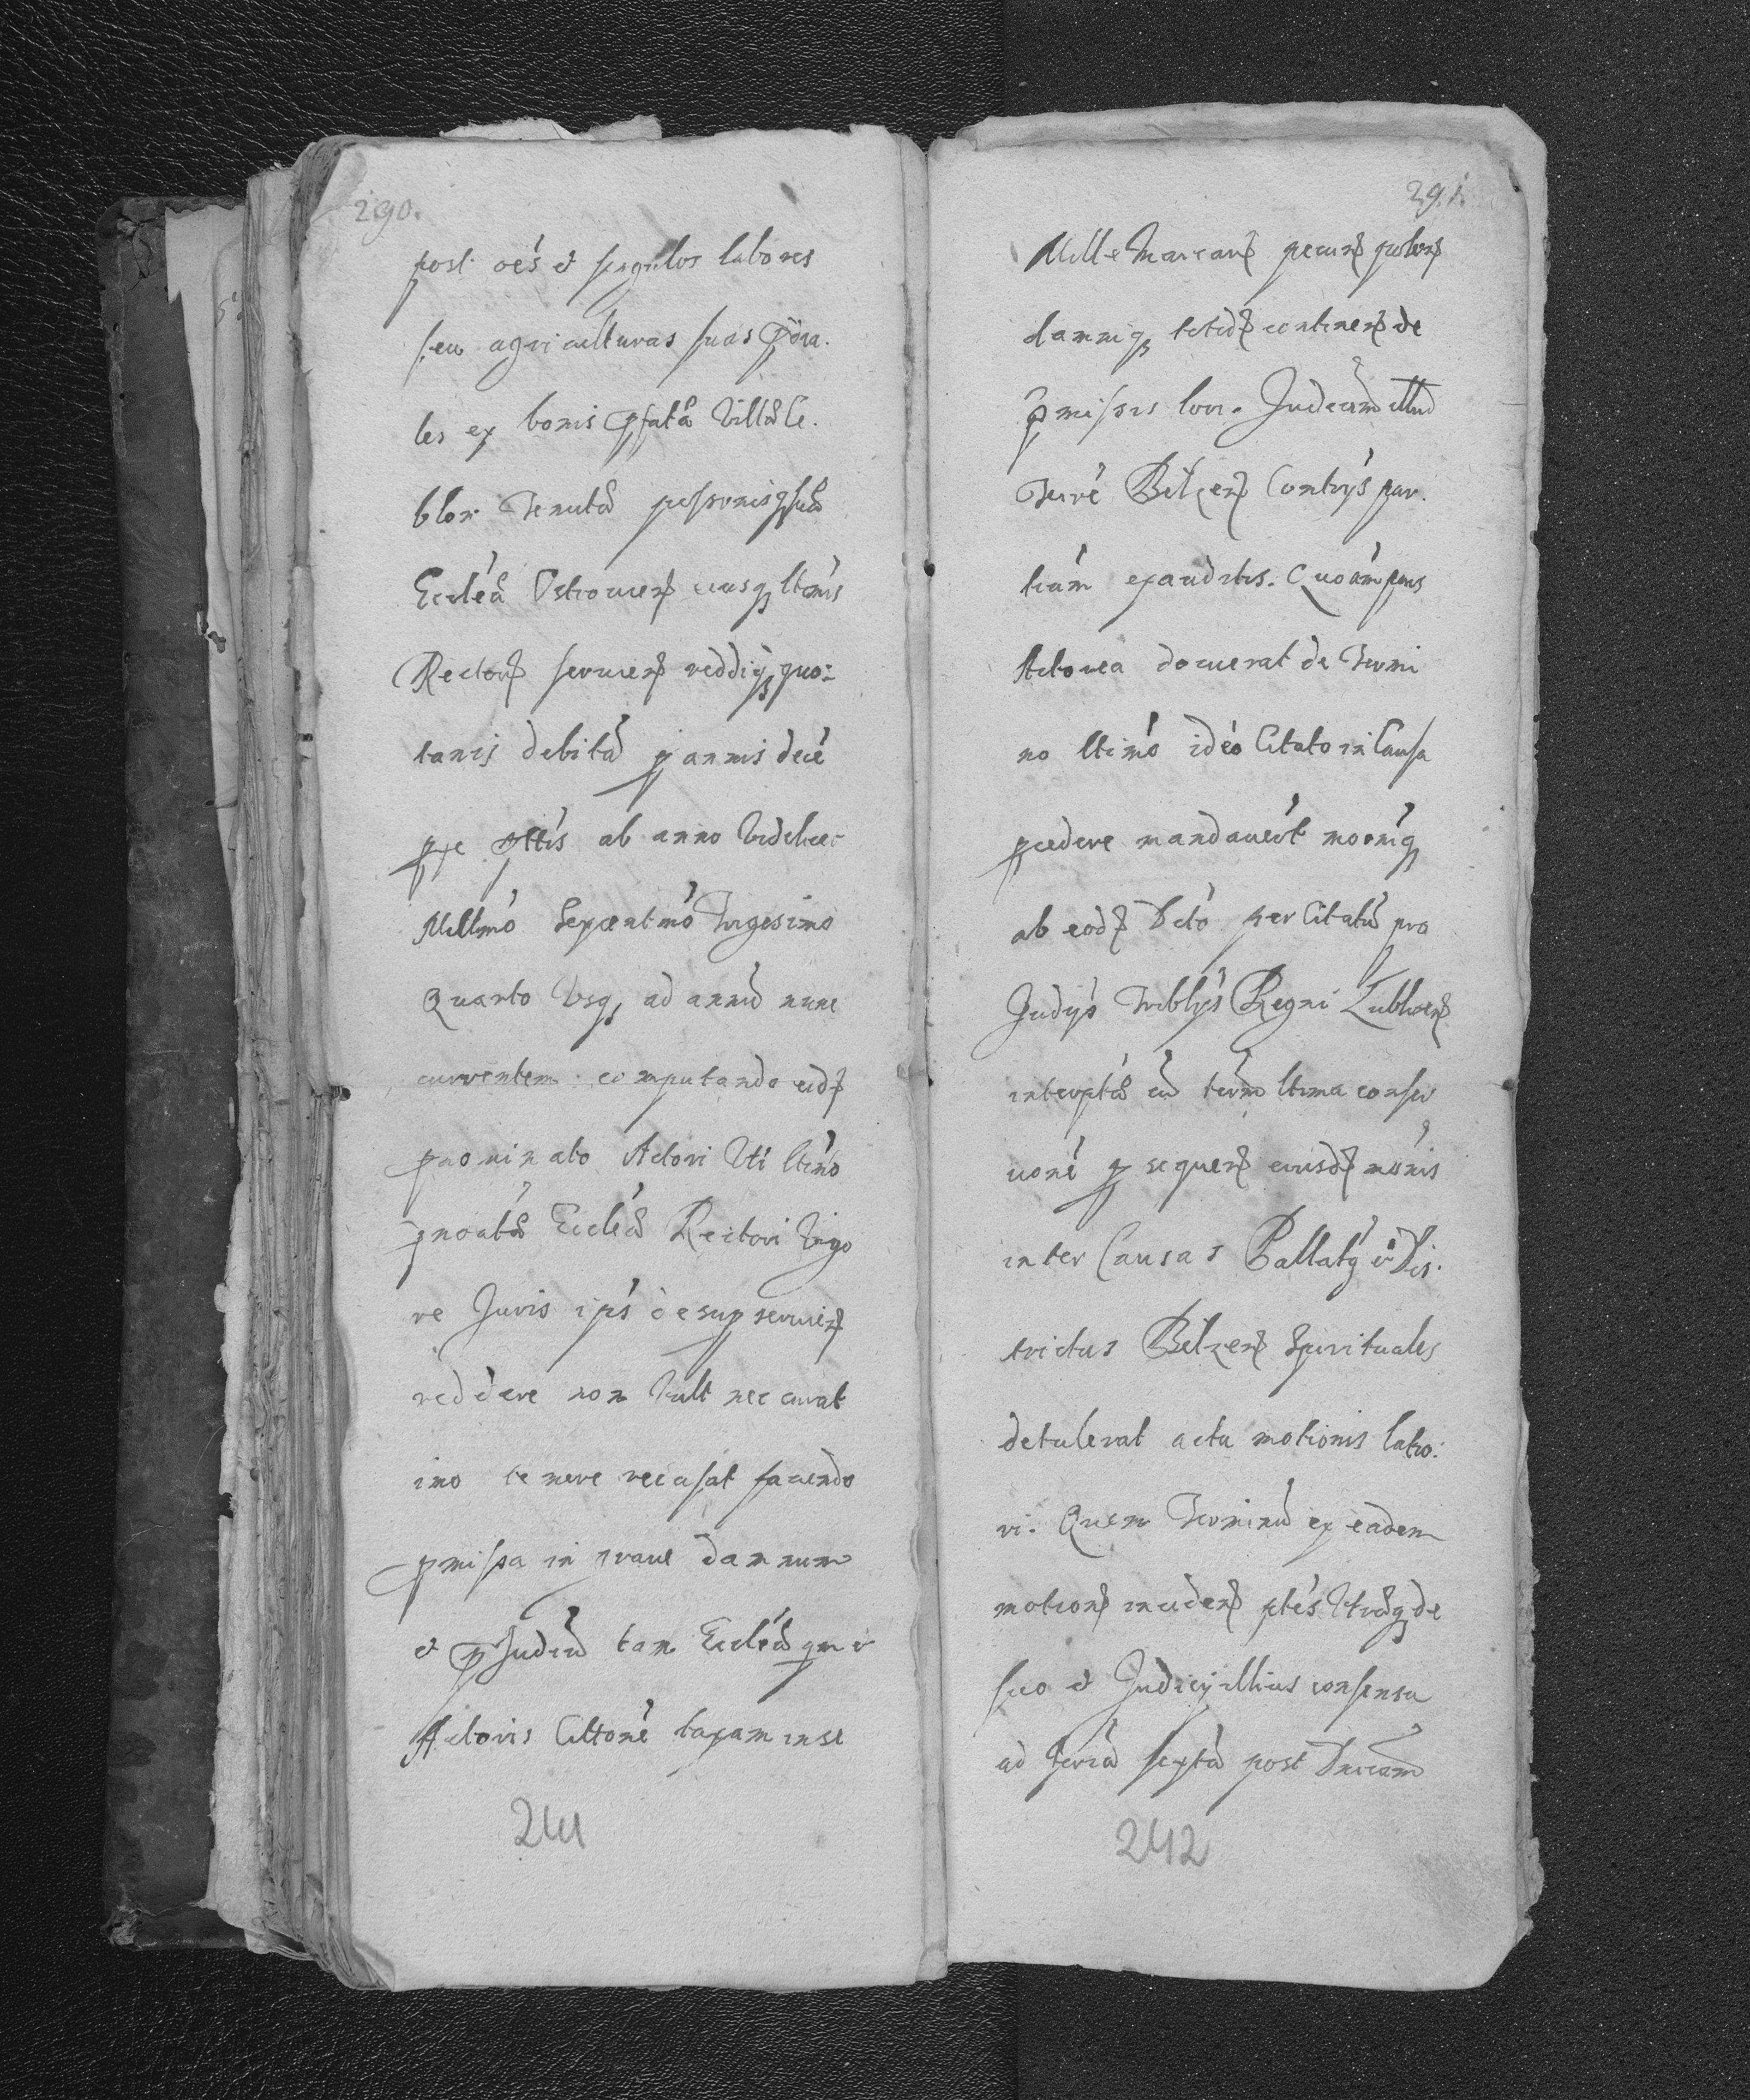 290.
post oes et singulos labores
seu agriculturas suas
les ex bonis pfata Villa Ce.
blor Tenuta
Ecclea Ostrovien eiusq ltimis
Rectori servien reddiq quo:
tanis debita p annis dece
pse pttis ab anno Videlicet
Millmo Sexcentmo Trigesimo
Quarto Usq ad annu nunc
currentem computando eid
pnominato Actori Uti ltimo
pnoata Ecclea Rectori Vigo
re Juris ipsi desup servien
reddere non Vult nec curat
imo temere recusat faciendo
pmissa in grave damnum
et pJudiciu tam Ecclea qm et
Actoris Cittone taxam in se
241
291.
Mille Marcar pecun polon
damniq totid continen de
pmissis lori. Judicium illud
Terre Belzen Contrijs par.
tium exauditis. Quoam pars
Actorea docuerat de Termi
no ltimo ideo Citato in Causa
pcedere mandaverit moniq
ab eod Dcto per Citatu pro
Judijs Triblijs Regni Lublinen
interpta cu termo ltima conser
vone p sequen eiusd monis
inter Causas Pallatij et Dis.
trictus Belzen Spirituales
detulerat actu motionis latio:
ri. Quem Terminu ex eadem
motione inciden ptes Utraq de
suo et Judicij illius consensu
ad feria sexta post Dnicam
242